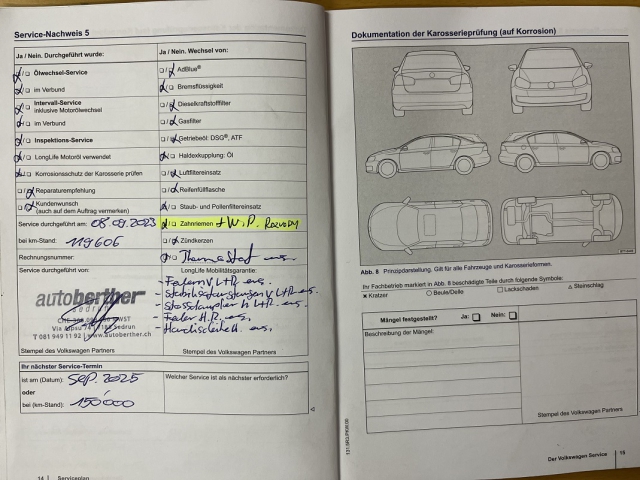 Service-Nachweis 5
Ja / Nein. Durchgeführt wurde:
Ölwechsel-Service
im Verbund
Intervall-Service
inklusive Motorölwechsel
im Verbund
Inspektions-Service
LongLife Motoröl verwendet
Korrosionsschutz der Karosserie prüfen
Reparaturempfehlung
Kundenwunsch
(auch auf dem Auftrag vermerken)
Service durchgeführt am: 08.09.2023
bei km-Stand: 119606
Rechnungsnummer:
Service durchgeführt von:
autoberther
sedrun
Via Alpsu 74, 7188 Sedrun
T 081 949 11 92 | www.autoberther.ch
Stempel des Volkswagen Partners
Ja / Nein. Wechsel von:
AdBlue®
Bremsflüssigkeit
Dieselkraftstofffilter
Gasfilter
Getriebeöl: DSG®, ATF
Haldexkupplung: Öl
Luftfiltereinsatz
Reifenfüllflasche
Staub- und Pollenfiltereinsatz
Zahnriemen + W.P. ROZVODY
Zündkerzen
Thermostat ers.
LongLife Mobilitätsgarantie:
- Federn V L+R. ers.
- Stabilisatorstangen V L+R. ers.
- Stossdämpfer H L+R. ers.
- Feder H.R. ers.
ers.
Stempel des Volkswagen Partners
Ihr nächster Service-Termin
ist am (Datum): Sep. 2025
oder
bei (km-Stand): 150'000
Welcher Service ist als nächster erforderlich?
14 | Serviceplan
Dokumentation der Karosserieprüfung (auf Korrosion)
Abb. 8 Prinzipdarstellung. Gilt für alle Fahrzeuge und Karosserieformen.
Ihr Fachbetrieb markiert in Abb. 8 beschädigte Teile durch folgende Symbole:
× Kratzer ○ Beule/Delle □ Lackschaden △ Steinschlag
Mängel festgestellt? Ja: Nein:
Beschreibung der Mängel:
Stempel des Volkswagen Partners
Der Volkswagen Service | 15